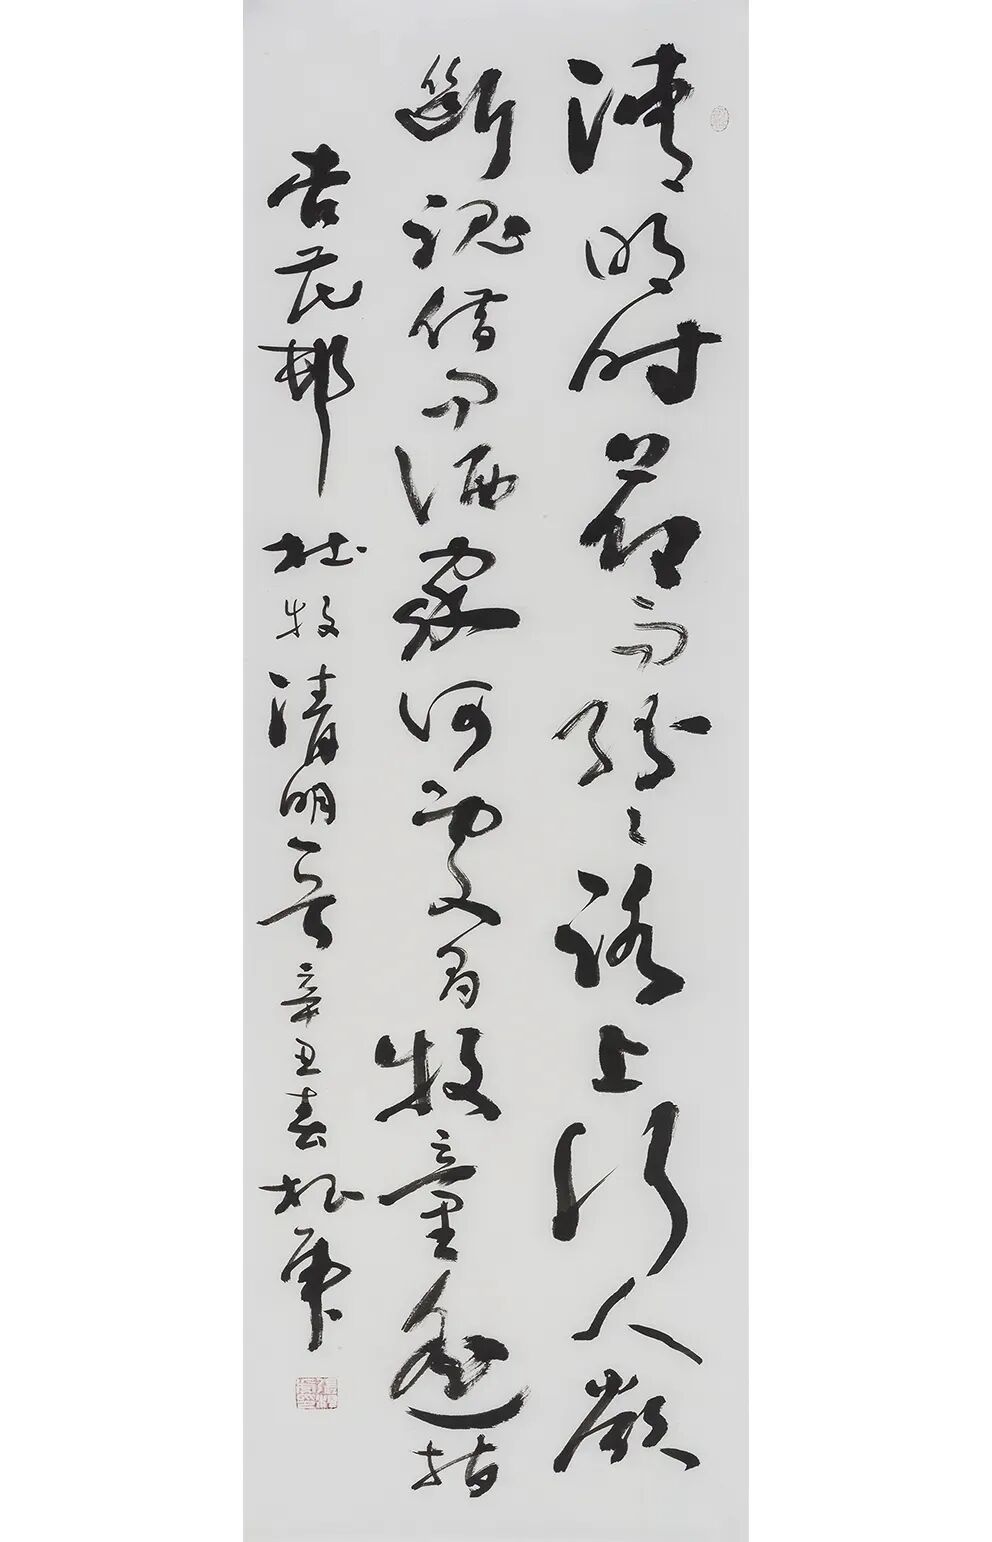 清明时节雨纷〻路上行人欲
断魂借问酒家何處有牧童遥指
杏花邨 杜牧清明一首 辛丑春